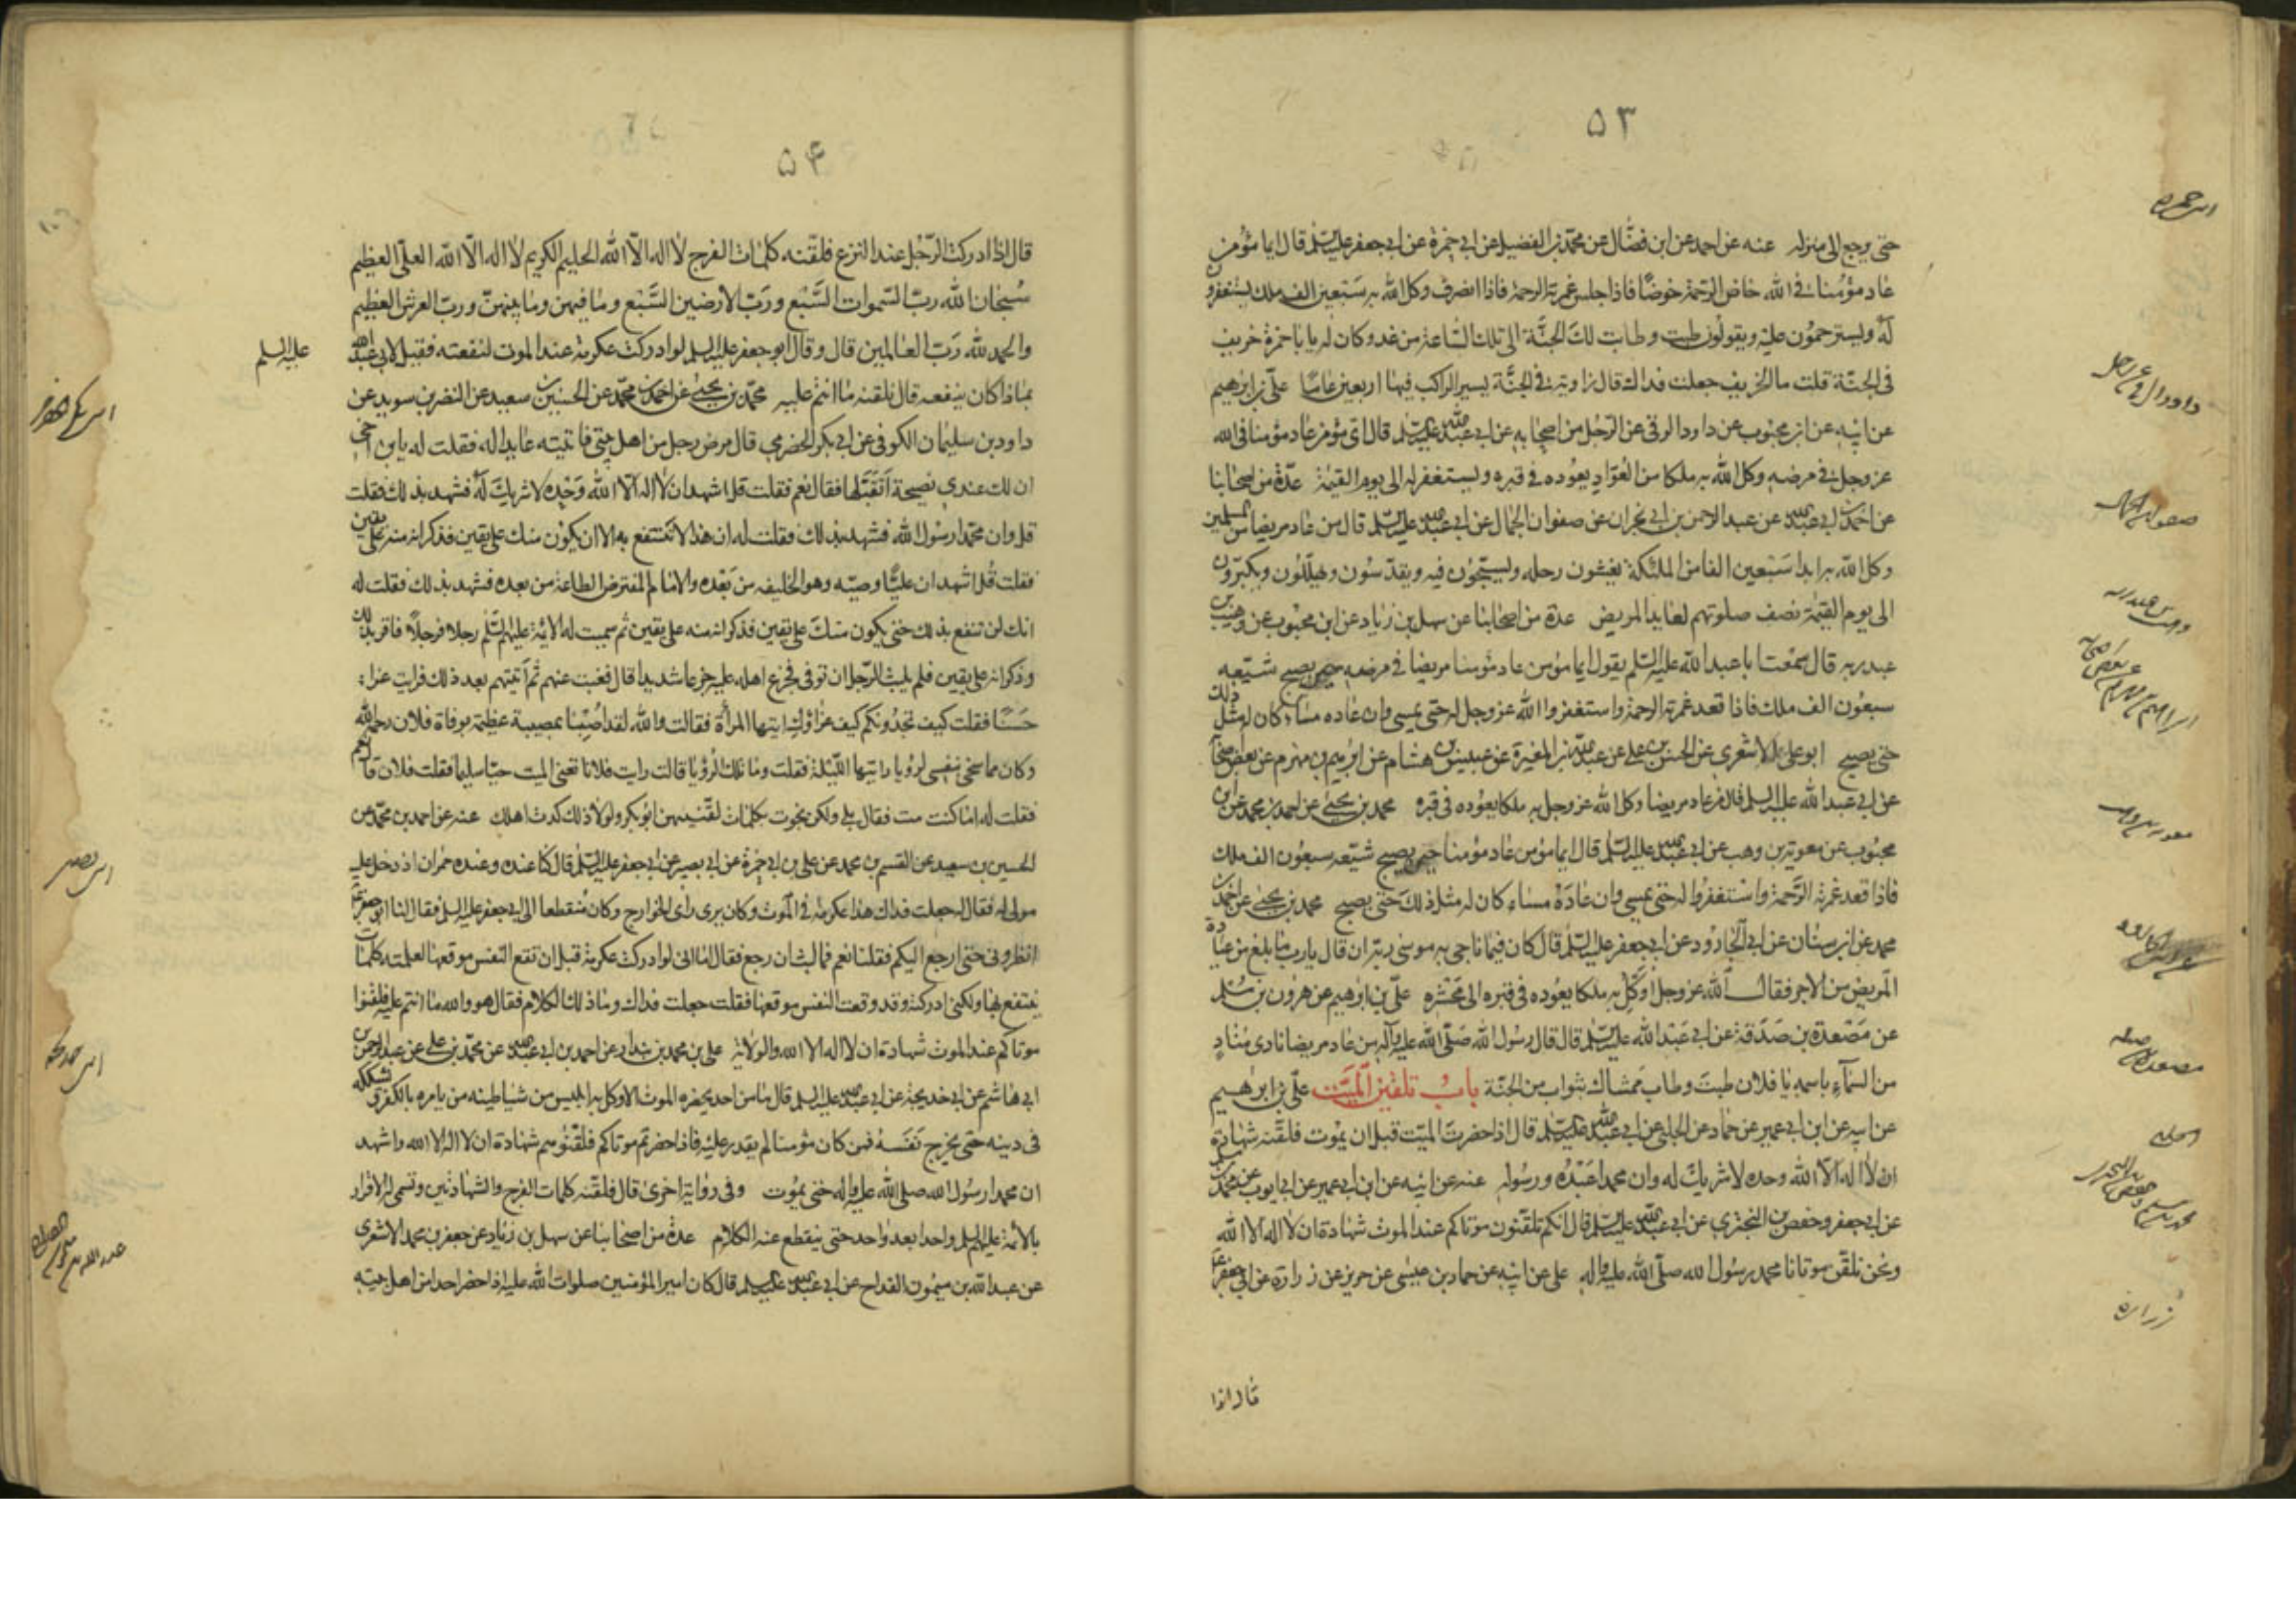 ۵۳
حتى يرجع الى منزله عنه عن احمد عن ابن فضال عن محمد بن الفضيل عن ابى حمزة عن ابى جعفر عليه السلم قال ايما مؤمن
عاد مؤمنا فى الله خاض الرحمة خوضا فاذا جلس غمرته الرحمة فاذا انصرف وكل الله به سبعين الف ملك يستغفرون
له ويسترحمون عليه ويقولون طبت وطابت لك الجنة الى تلك الساعة من غد وكان له يا با حمزة خريف
فى الجنة قلت ما الخريف جعلت فداك قال زاوية فى الجنة يسير الراكب فيها اربعين عاما على بن ابرهيم
عن ابيه عن ابن محبوب عن داود الرقى عن الرجل من اصحابه عن ابى عبد الله عليه السلم قال اى مؤمن عاد مؤمنا فى الله
عز وجل فى مرضه وكل الله به ملكا من العواد يعوده فى قبره ويستغفر له الى يوم القيمة عدة من اصحابنا
عن احمد بن ابى عبد الله عن عبد الرحمن بن ابى نجران عن صفوان الجمال عن ابى عبد الله عليه السلم قال من عاد مريضا من المسلمين
وكل الله به ابدا سبعين الفا من الملئكة يغشون رحله ويسبحون فيه ويقدسون ويهللون ويكبرون
الى يوم القيمة نصف صلوتهم لعايد المريض عدة من اصحابنا عن سهل بن زياد عن ابن محبوب عن وهب بن
عبد ربه قال سمعت ابا عبد الله عليه السلم يقول ايما مؤمن عاد مؤمنا مريضا فى مرضه حين يصبح شيعه
سبعون الف ملك فاذا قعد غمرته الرحمة واستغفروا الله عز وجل له حتى يمسى وان عاده مساء كان له مثل ذلك
حتى يصبح ابو على الاشعرى عن الحسن بن على عن عبد الله بن المغيرة عن عبيس بن هشام عن ابرهيم بن مهزم عن بعض اصحابنا
عن ابى عبد الله عليه السلم قال من عاد مريضا وكل الله عز وجل به ملكا يعوده فى قبره محمد بن يحيى عن احمد بن محمد عن ابن
محبوب عن معوية بن وهب عن ابى عبد الله عليه السلم قال ايما مؤمن عاد مؤمنا حين يصبح شيعه سبعون الف ملك
فاذا قعد غمرته الرحمة واستغفروا له حتى يمسى وان عاده مساء كان له مثل ذلك حتى يصبح محمد بن يحيى عن احمد بن
محمد عن ابن سنان عن ابى الجارود عن ابى جعفر عليه السلم قال كان فيما ناجى به موسى ربه ان قال يا رب ما بلغ من عيادة
المريض من الاجر فقال الله عز وجل اوكل به ملكا يعوده فى قبره الى محشره على بن ابرهيم عن هرون بن مسلم
عن مصعدة بن صدقة عن ابى عبد الله عليه السلم قال قال رسول الله صلى الله عليه وآله من عاد مريضا نادى مناد
من السمآء باسمه يا فلان طبت وطاب ممشاك بثواب من الجنة باب تلقين الميت على بن ابرهيم
عن ابيه عن ابن ابى عمير عن حماد عن الحلبى عن ابى عبد الله عليه السلم قال اذا حضرت الميت قبل ان يموت فلقنه شهادة
ان لا اله الا الله وحده لا شريك له وان محمدا عبده ورسوله عنه عن ابيه عن ابن ابى عمير عن ابى ايوب عن محمد بن مسلم
عن ابى جعفر وحفص بن البخترى عن ابى عبد الله عليه السلم قال انكم تلقنون موتاكم عند الموت شهادة ان لا اله الا الله
ونحن نلقن موتانا محمد رسول الله صلى الله عليه واله على عن ابيه عن حماد بن عيسى عن حريز عن زرارة عن ابى جعفر ع
قال اذا
ابى حمزه
زراره
۵۴
قال اذا ادركت الرجل عند النزع فلقنه كلمات الفرج لا اله الا الله الحليم الكريم لا اله الا الله العلى العظيم
سبحان الله رب السموات السبع ورب الارضين السبع وما فيهن وما بينهن ورب العرش العظيم
والحمد لله رب العالمين قال وقال ابو جعفر عليه السلم لو ادركت عكرمة عند الموت لنفعته فقيل لابى عبد الله
عليه السلم
بماذا كان ينفعه قال يلقنه ما انتم عليه محمد بن يحيى عن احمد بن محمد عن الحسين بن سعيد عن النضر بن سويد عن
داود بن سليمان الكوفى عن ابى بكر الحضرمى قال مرض رجل من اهل بيتى فاتيته عايدا له فقلت له يا بن اخى
ان لك عندى نصيحة اتقبلها فقال نعم فقلت قل اشهد ان لا اله الا الله وحده لا شريك له فشهد بذلك فقلت
قل وان محمدا رسول الله فشهد بذلك فقلت له ان هذا لا تنتفع به الا ان يكون منك على يقين فذكر انه منه على يقين
فقلت قل اشهد ان عليا وصيه وهو الخليفه من بعده والامام المفترض الطاعة من بعده فشهد بذلك فقلت له
انك لن تنتفع بذلك حتى يكون منك على يقين فذكر انه منه على يقين ثم سميت له الائمة عليهم السلم رجلا فرجلا فاقر بذلك
وذكر انه على يقين فلم يلبث الرجل ان توفى فجزع اهله عليه جزعا شديدا قال فغبت عنهم ثم اتيتهم بعد ذلك فرايت عزاء
حسنا فقلت كيف تجدونكم كيف عزاؤك ايتها المرأة فقالت والله لقد اصبنا بمصيبة عظيمة بوفاة فلان رحمه الله
وكان مما سخى نفسى لرؤيا رايتها الليلة فقلت وما تلك الرؤيا قالت رايت فلانا تعنى الميت حيا سليما فقلت فلان قال نعم
فقلت له اما كنت مت فقال بلى ولكن نجوت بكلمات لقنيهن ابو بكر ولولا ذلك كدت اهلك عنه عن احمد بن محمد عن
الحسين بن سعيد عن القسم بن محمد عن على بن ابى حمزة عن ابى بصير عن ابى جعفر عليه السلم قال كنا عنده وعنده حمران اذ دخل عليه
مولى له فقال له جعلت فداك هذا عكرمة فى الموت وكان يرى راى الخوارج وكان منقطعا الى ابى جعفر عليه السلم فقال لنا ابو جعفر ع
انظرونى حتى ارجع اليكم فقلنا نعم فما لبث ان رجع فقال اما انى لو ادركت عكرمة قبل ان تقع النفس موقعها لعلمته كلمات
ينتفع بها ولكنى ادركته وقد وقعت النفس موقعها فقلت جعلت فداك وما ذلك الكلام فقال هو والله ما انتم عليه فلقنوا
موتاكم عند الموت شهادة ان لا اله الا الله والولاية على بن محمد بن بندار عن احمد بن ابى عبد الله عن محمد بن على عن عبد الرحمن بن
ابى هاشم عن ابى خديجة عن ابى عبد الله عليه السلم قال ما من احد يحضره الموت الا وكل به ابليس من شياطينه من يامره بالكفر ويشككه
فى دينه حتى يخرج نفسه فمن كان مؤمنا لم يقدر عليه فاذا حضرتم موتاكم فلقنوهم شهادة ان لا اله الا الله واشهد
ان محمدا رسول الله صلى الله عليه واله حتى يموت وفى رواية اخرى قال فلقنه كلمات الفرج والشهادتين وتسمى له الاقرار
بالائمة عليهم السلم واحدا بعد واحد حتى ينقطع عنه الكلام عدة من اصحابنا عن سهل بن زياد عن جعفر بن محمد الاشعرى
عن عبد الله بن ميمون القداح عن ابى عبد الله عليه السلم قال كان امير المؤمنين صلوات الله عليه اذا حضر احدا من اهل بيته
ابى بصير